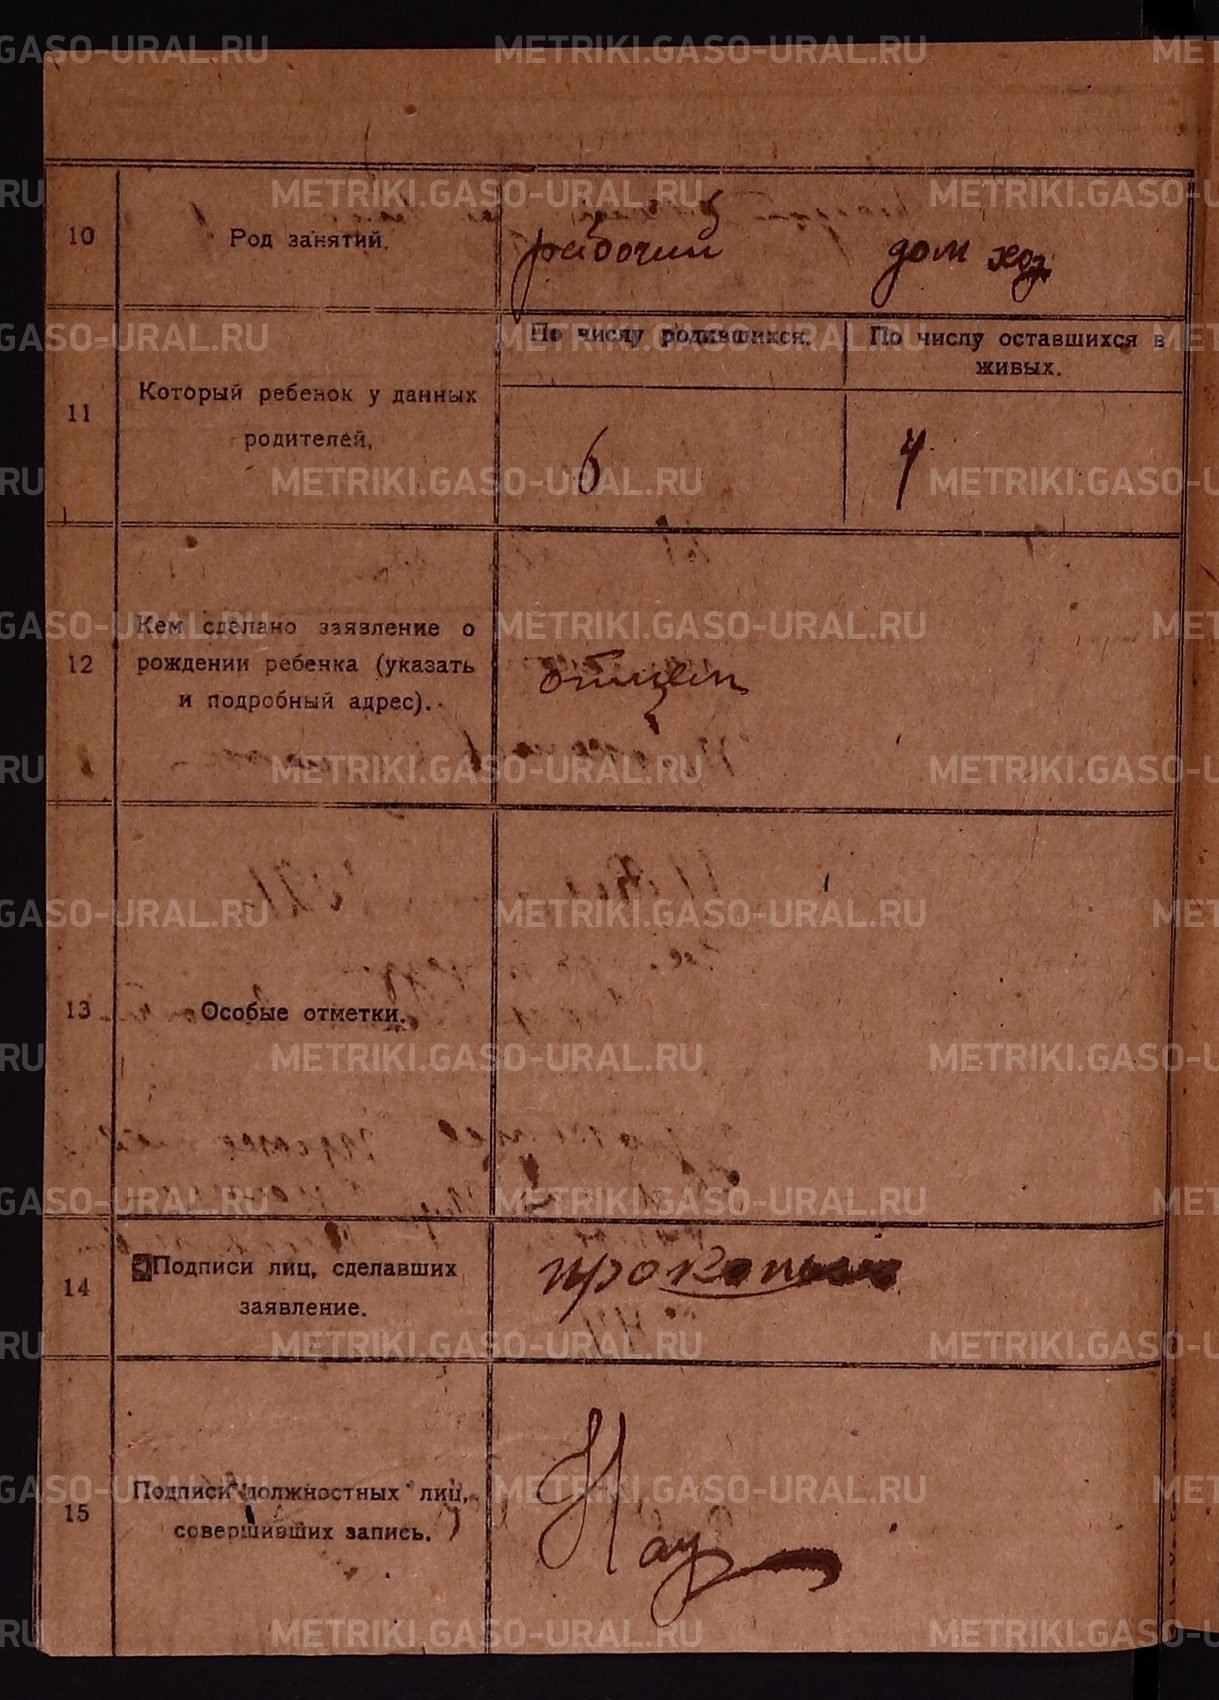 METRIKI.GASO-URAL.RU
10
Род занятий.
рабочий
дом хоз.
11
Который ребенок у данных
родителей,
По числу родившихся.
По числу оставшихся в
живых.
6
4
12
Кем сделано заявление о
рождении ребенка (указать
и подробный адрес).
отцем
13
Особые отметки.
14
Подписи лиц, сделавших
заявление.
15
Подписи должностных лиц,
совершивших запись.